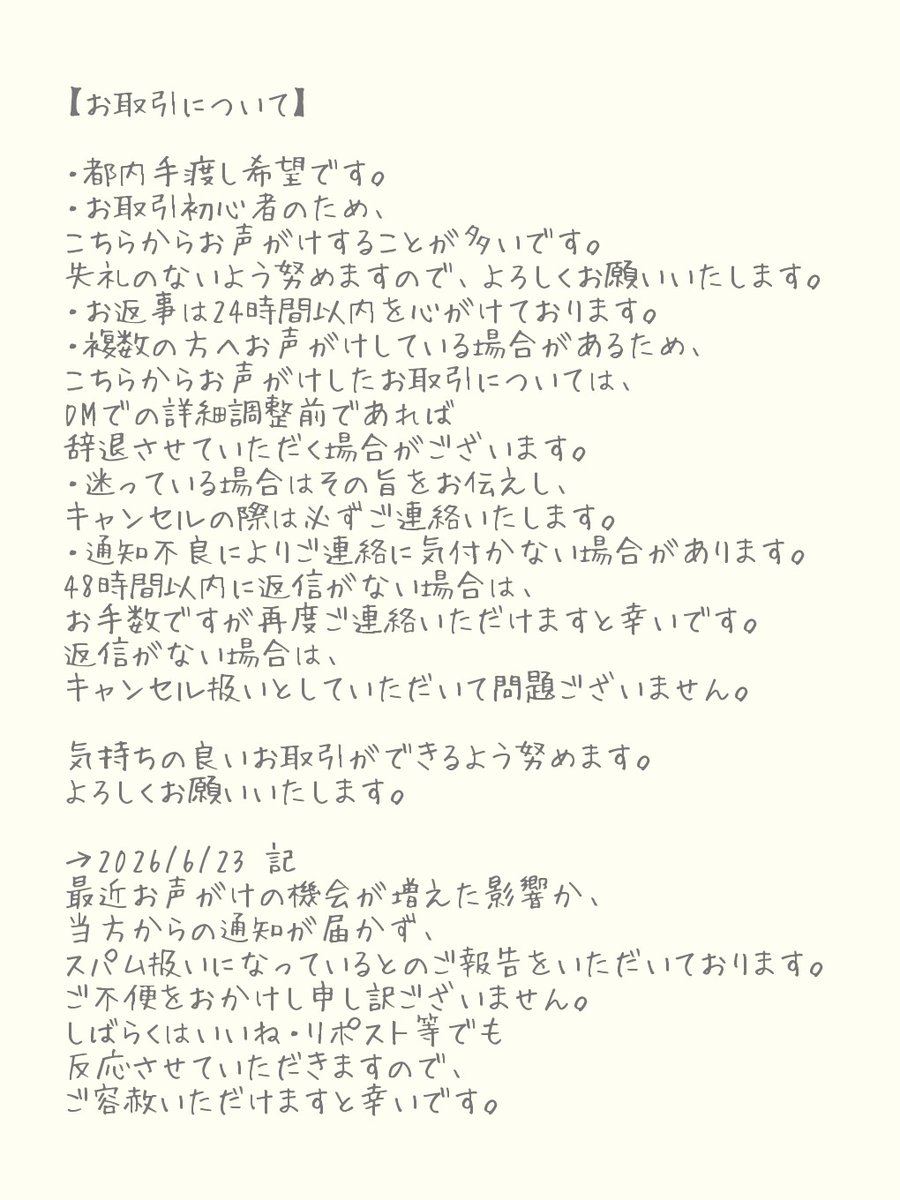 【お取引について】
・都内手渡し希望です。
・お取引初心者のため、
こちらからお声がけすることが多いです。
失礼のないよう努めますので、よろしくお願いいたします。
・お返事は24時間以内を心がけております。
・複数の方へお声がけしている場合があるため、
こちらからお声がけしたお取引については、
DMでの詳細調整前であれば
辞退させていただく場合がございます。
・迷っている場合はその旨をお伝えし、
キャンセルの際は必ずご連絡いたします。
・通知不良によりご連絡に気付かない場合があります。
48時間以内に返信がない場合は、
お手数ですが再度ご連絡いただけますと幸いです。
返信がない場合は、
キャンセル扱いとしていただいて問題ございません。
気持ちの良いお取引ができるよう努めます。
よろしくお願いいたします。
→2026/6/23 記
最近お声がけの機会が増えた影響か、
当方からの通知が届かず、
スパム扱いになっているとのご報告をいただいております。
ご不便をおかけし申し訳ございません。
しばらくはいいね・リポスト等でも
反応させていただきますので、
ご容赦いただけますと幸いです。